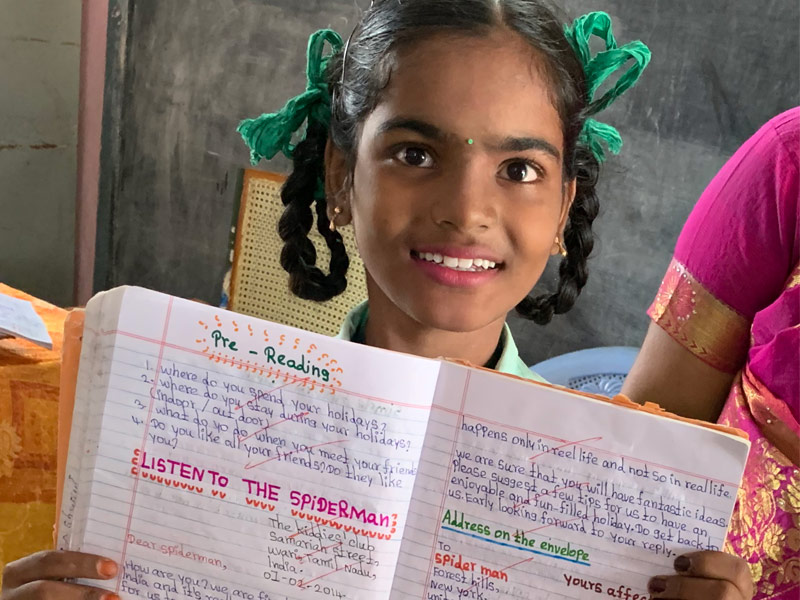 Pre - Reading
1. where do you spend your holidays?
2. where do you stay during your holidays?
(indoor / out door)
3. what do yo do when you meet your friends
4. Do you like all your friends? Do they like
you?
LISTEN TO THE SPIDERMAN
The kiddies club
samariah street,
Tamil Nadu,
India.
01-01-2014
Dear spiderman,
How are you? we are
India and it's
for us to
happens only in reel life and not so in real life.
we are sure that you will have fantastic ideas.
Please suggest a few tips for us to have an
enjoyable and fun-filled holiday. Do get back to
us. Early looking forward to your reply.
yours
Address on the envelope
To
spider man
Forest hills,
New york,